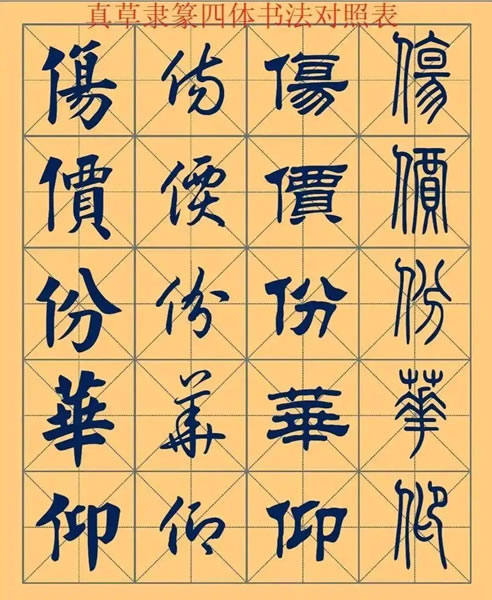 真草隶篆四体书法对照表
傷傷傷傷
價價價價
份份份份
華華華華
仰仰仰仰